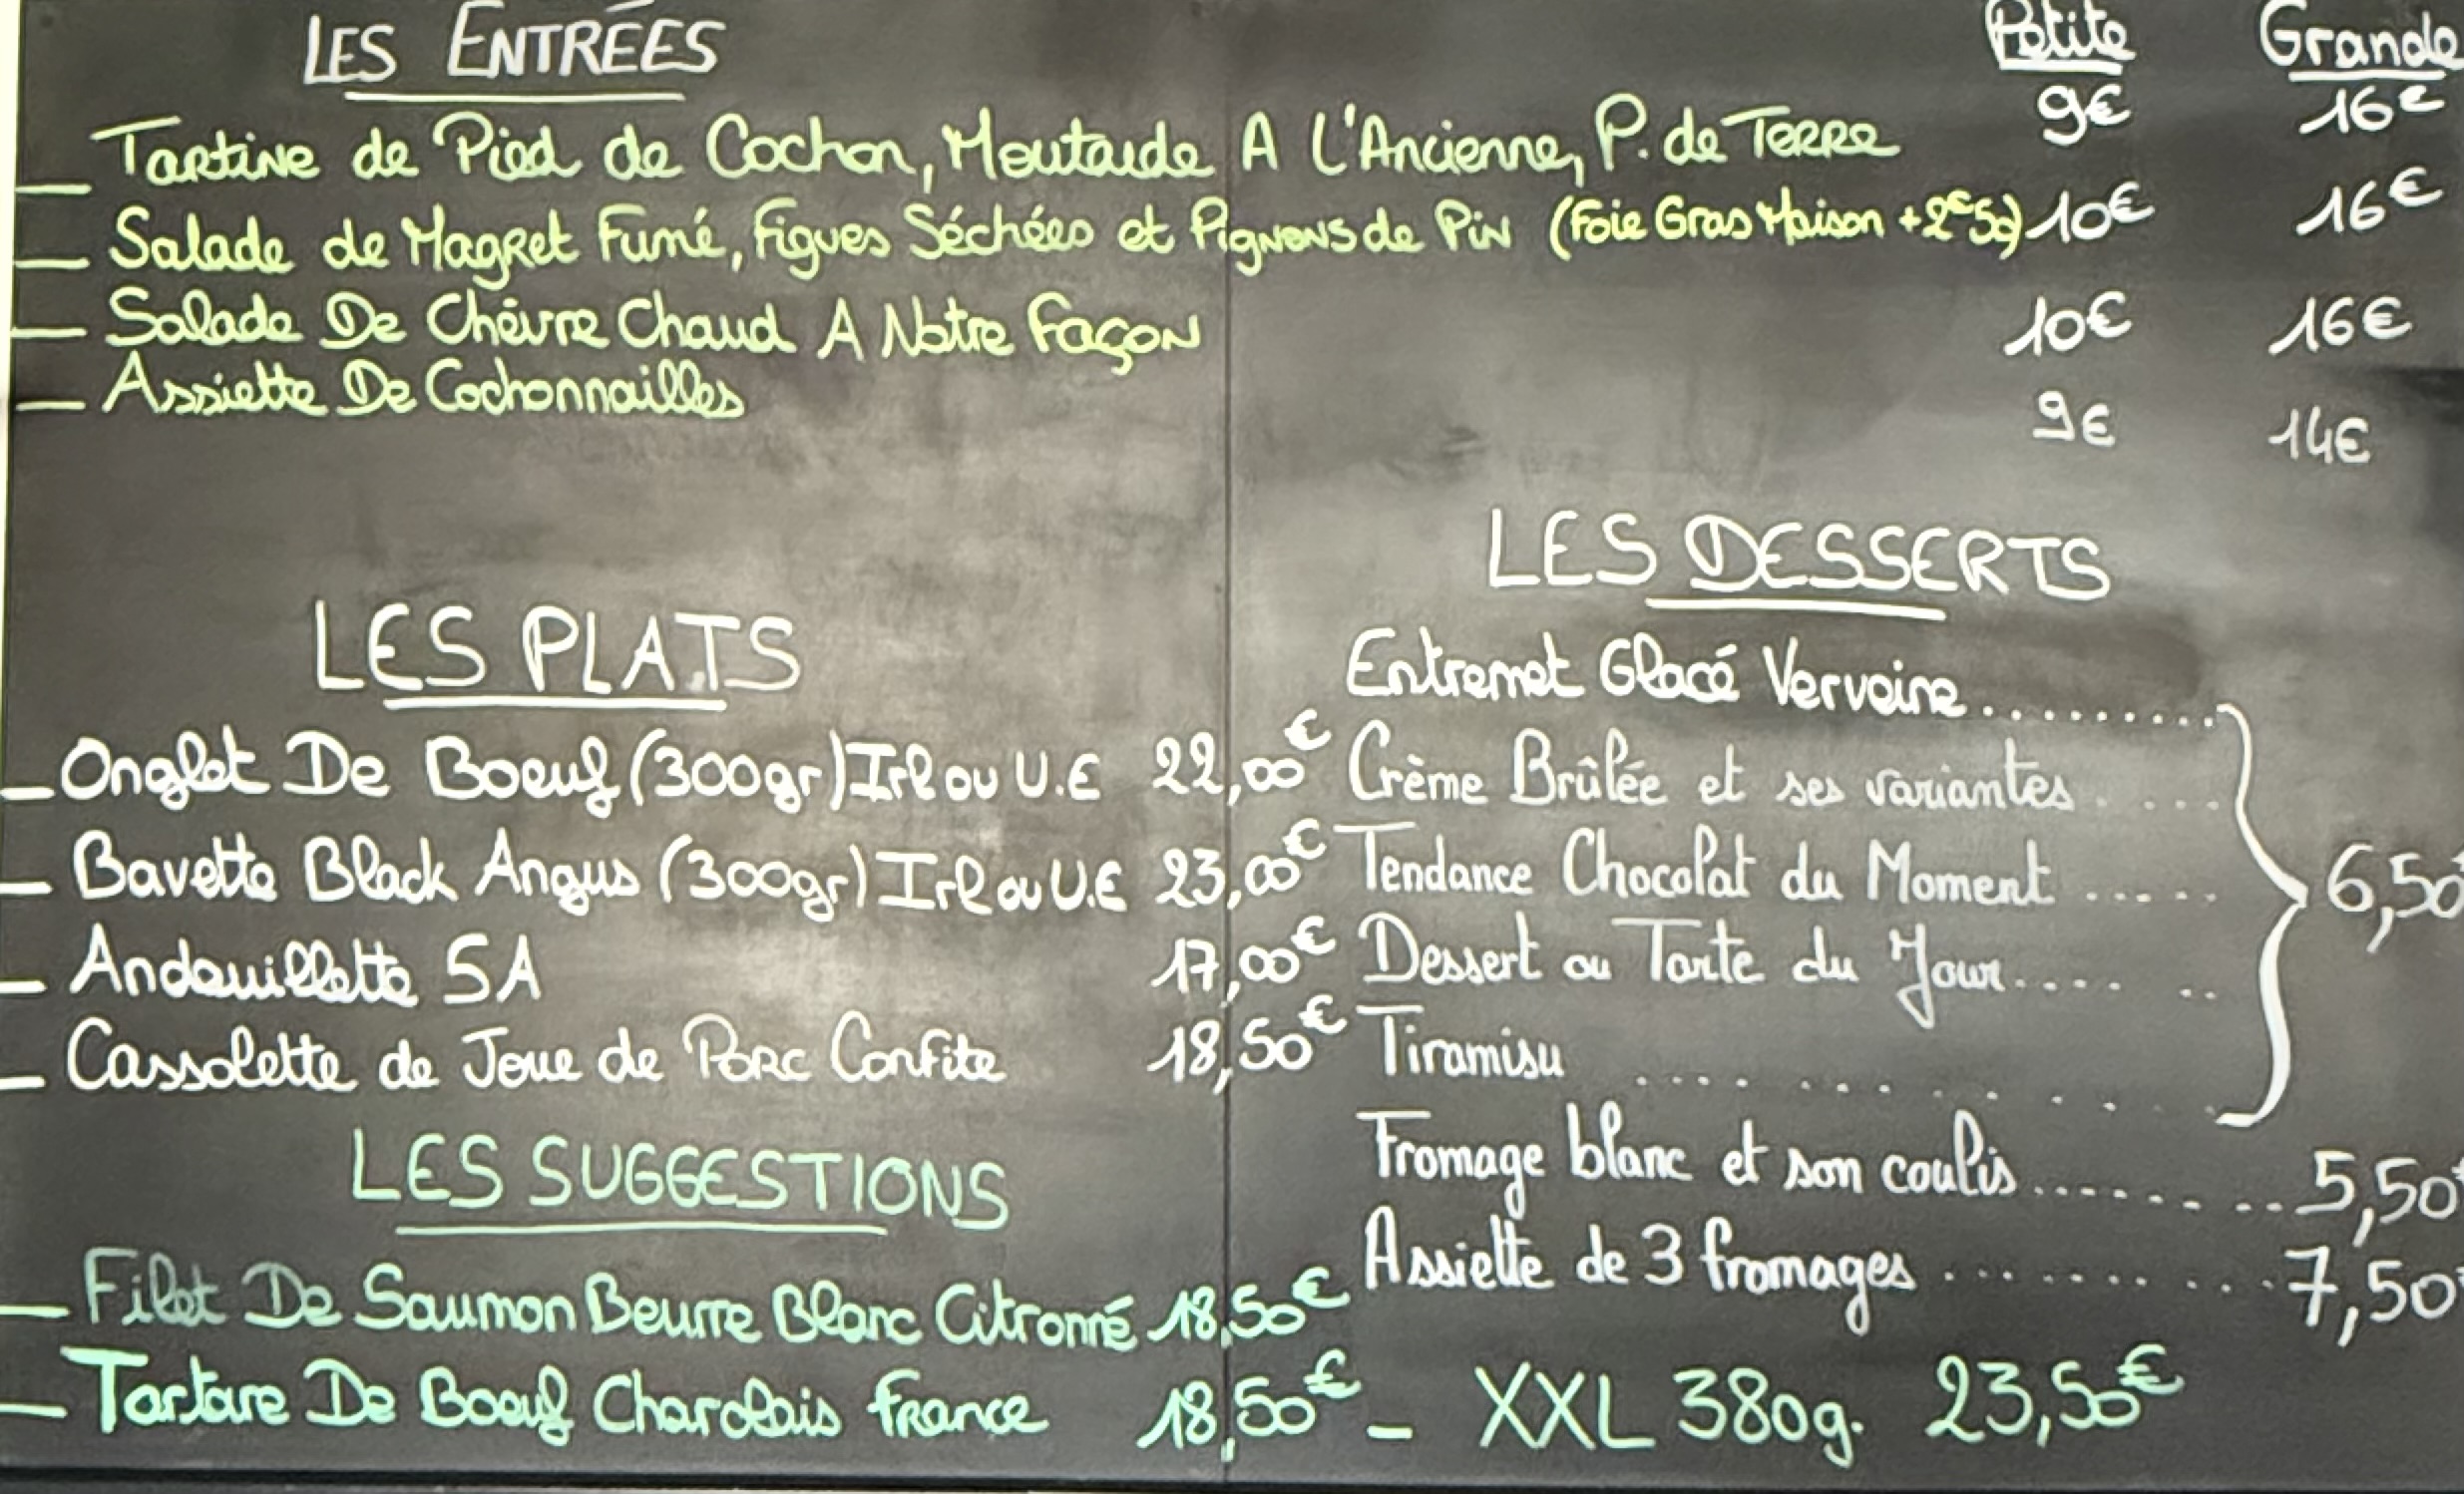 LES ENTRÉES Petite Grande
_ Tartine de Pied de Cochon, Moutarde A L'Ancienne, P. de Terre 9€ 16€
_ Salade de Magret Fumé, Figues Séchées et Pignons de Pin (Foie Gras Maison +2€50) 10€ 16€
_ Salade De Chèvre Chaud A Notre Façon 10€ 16€
_ Assiette De Cochonnailles 9€ 14€
LES PLATS
_ Onglet De Boeuf (300gr) Irl ou U.E 22,00€
_ Bavette Black Angus (300gr) Irl ou U.E 23,00€
_ Andouillette 5A 17,00€
_ Cassolette de Joue de Porc Confite 18,50€
LES SUGGESTIONS
_ Filet De Saumon Beurre Blanc Citronné 18,50€
_ Tartare De Boeuf Charolais France 18,50€ - XXL 380g. 23,50€
LES DESSERTS
Entremet Glacé Verveine..........
Crème Brûlée et ses variantes.....
Tendance Chocolat du Moment ..... 6,50
Dessert ou Tarte du Jour.... ..
Tiramisu ..........
Fromage blanc et son coulis.......... 5,50
Assiette de 3 fromages .......... 7,50